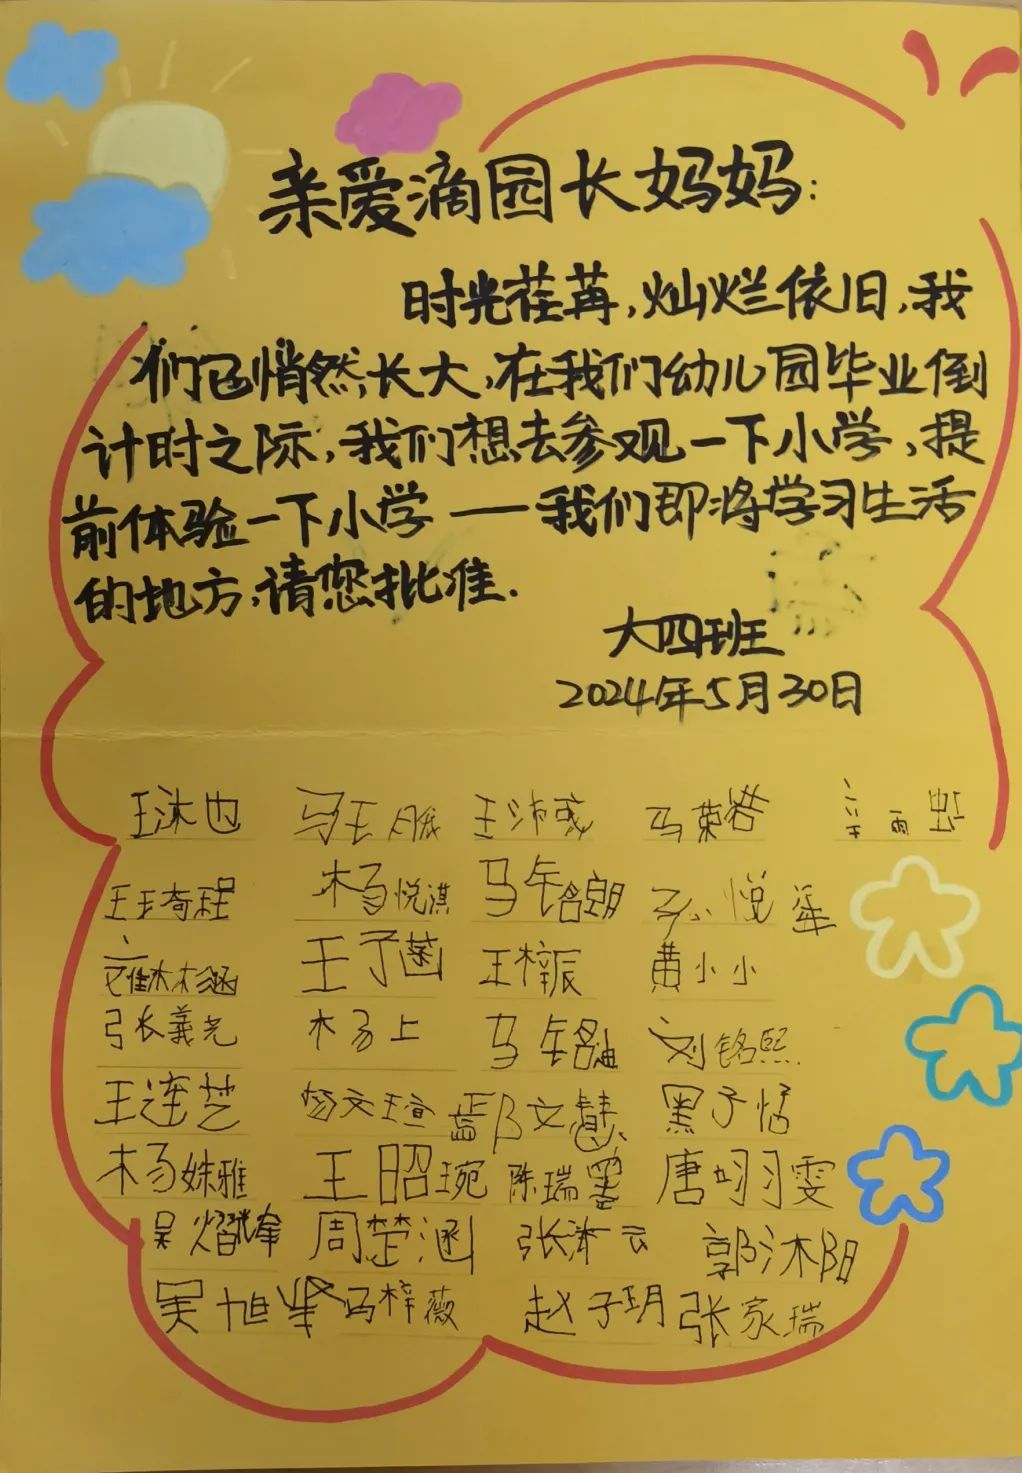 亲爱滴园长妈妈:
时光荏苒,灿烂依旧,我
们已悄然长大,在我们幼儿园毕业倒
计时之际,我们想去参观一下小学,提
前体验一下小学——我们即将学习生活
的地方,请您批准.
大四班
2024年5月30日
王沐也 马玉 王沛 马荣 辛雨虹
王奇程 杨悦淇 马铭朗 孙悦
涵 王子菡 王梓辰 黄小小
张长義尧 杨上 马铭 刘铭熙
王连艺 杨文瑄 文慧 黑子恬
杨姝雅 王昭琬 陈瑞 唐翊雯
吴熠 周楚涵 张济云 郭沐阳
吴旭峰 冯梓薇 赵子玥 张家瑞